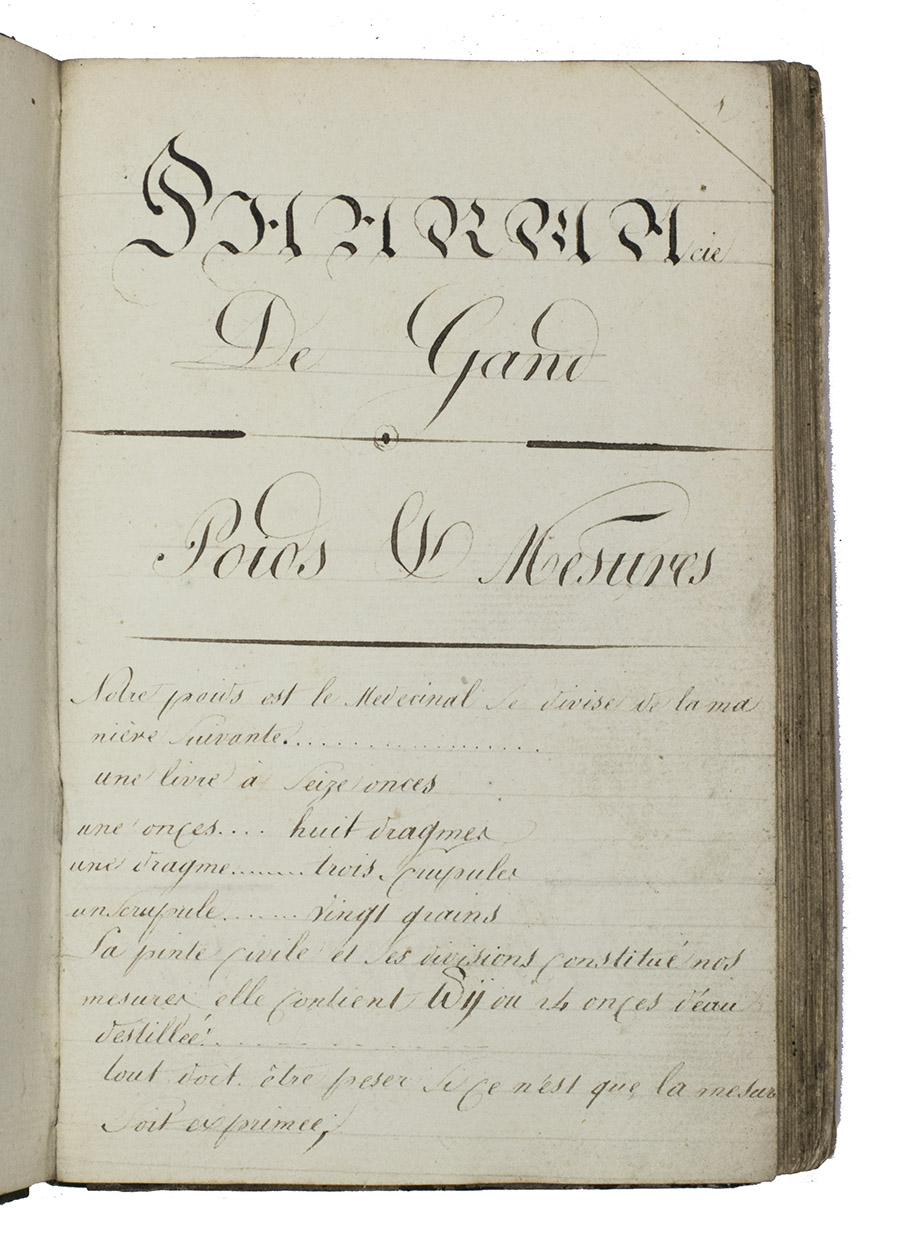 1
PHARMAcie
De Gand
Poids & Mesures
Notre poids est le Medecinal se divise de la ma
nière suivante...................
une livre à seize onces
une onçes.... huit dragmes
une dragme........ trois scrupules
un scrupule....... vingt grains
La pinte civile et ses divisions constitué nos
mesures elle contient ij ou 24 onçes d'eau
destillée...........
tout doit être peser si ce n'est que la mesur
soit exprimee,